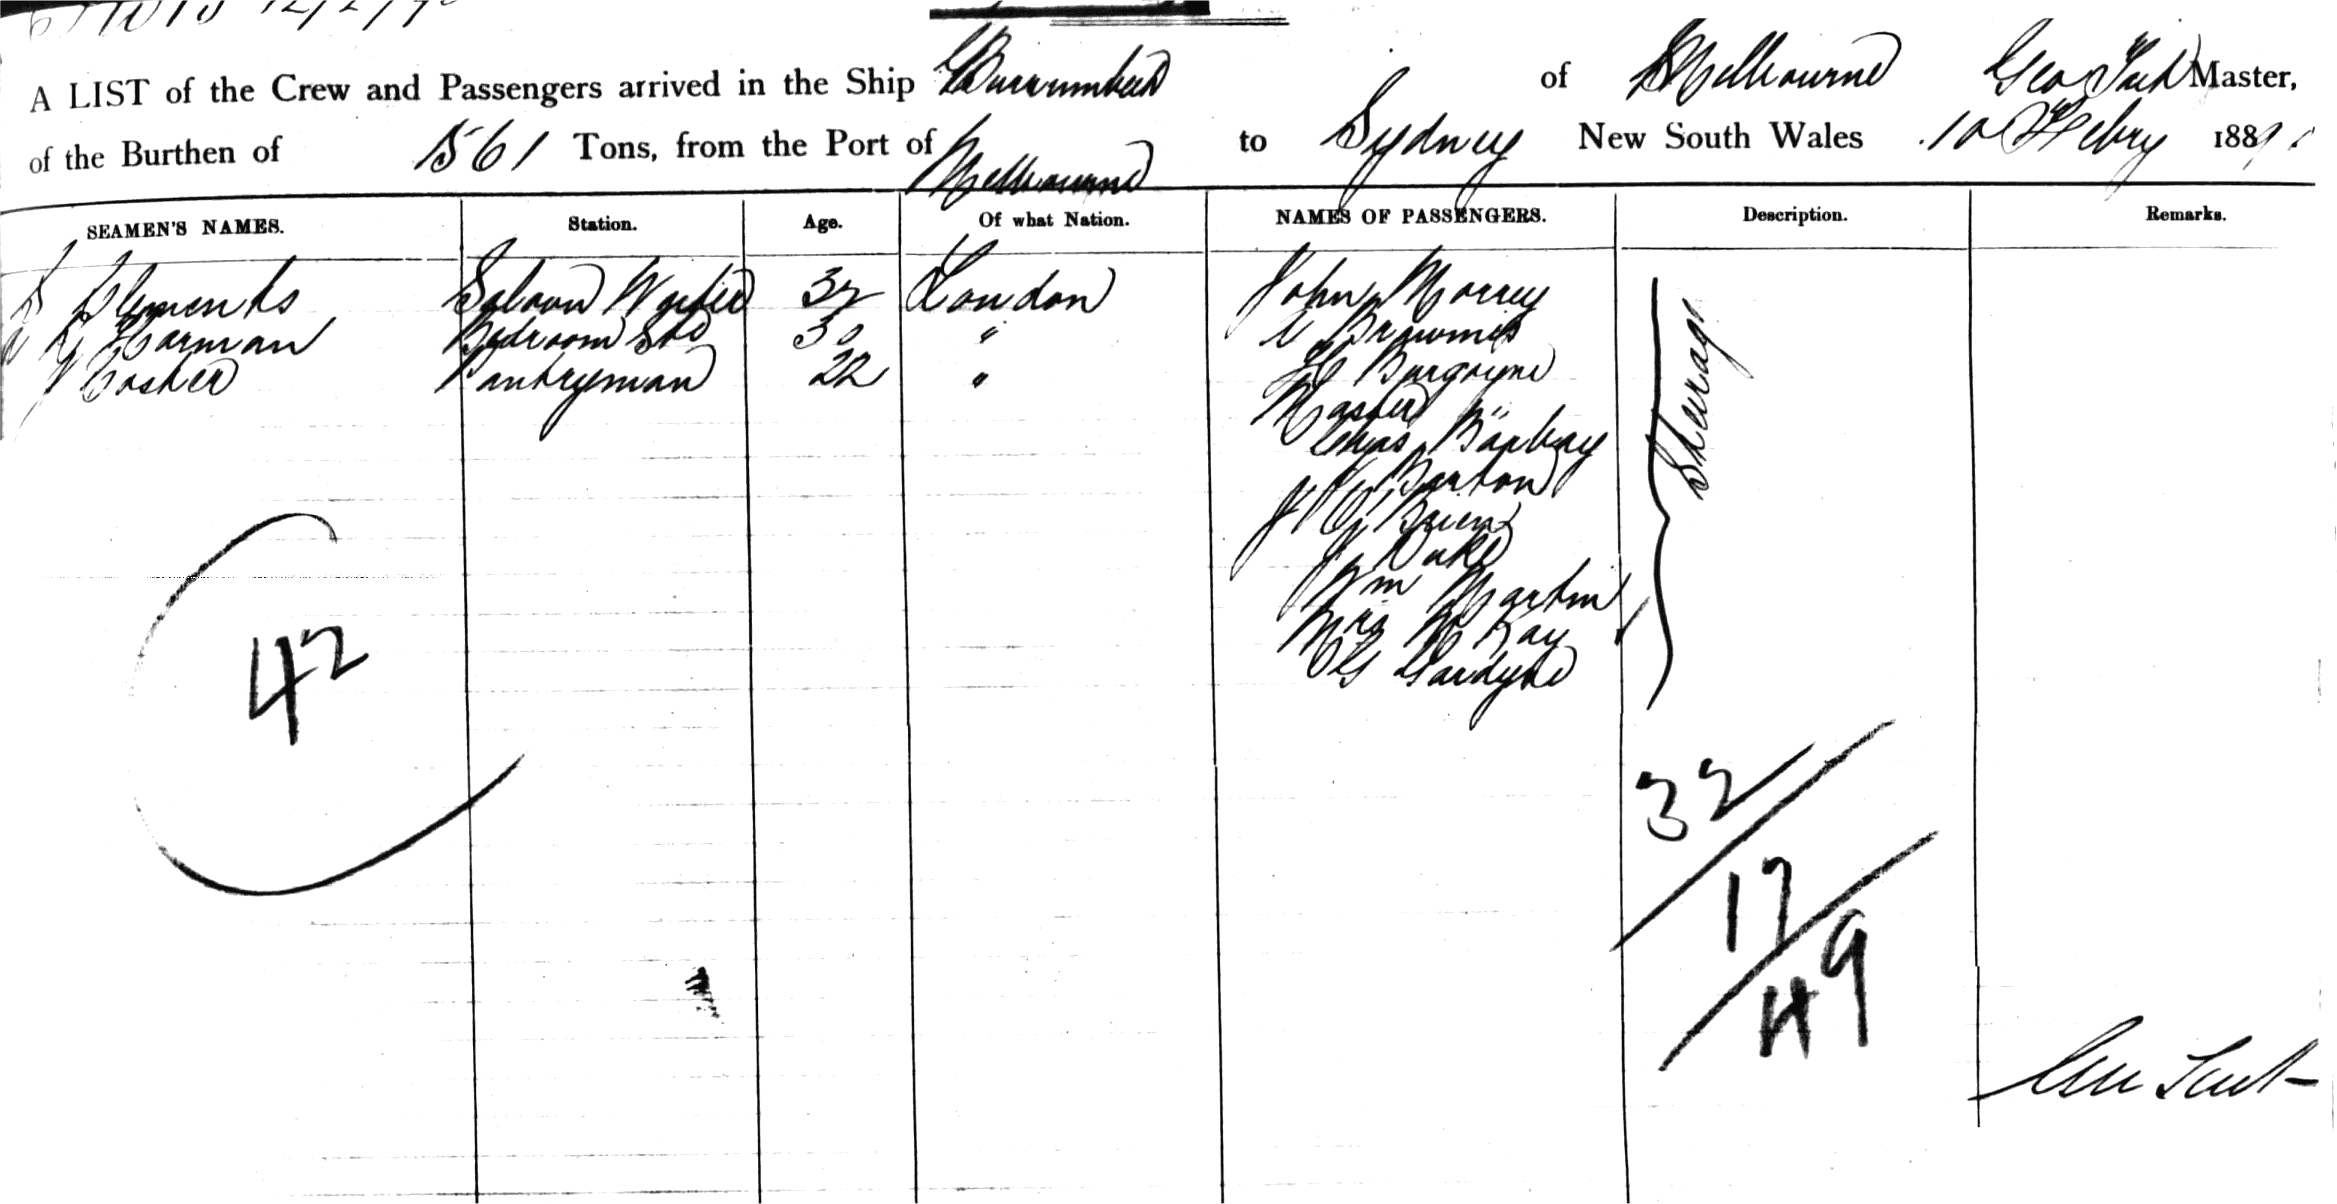 A LIST of the Crew and Passengers arrived in the Ship Burrumbeet of Melbourne Geo Tait Master,
of the Burthen of 1561 Tons, from the Port of Melbourne to Sydney New South Wales 10 Febry 1889
SEAMEN'S NAMES. Station. Age. Of what Nation. NAMES OF PASSENGERS. Description. Remarks.
Clements Saloon Waiter 32 London John Morrey Steerage
Harman Bedroom Std 30 " Brown
Cosher Pantryman 22 " Burgoyne
Master
Chas Barbay
Barton
J O'Brien
J Duke
Wm Martin
Mrs McKay
Gardyne
42
32
17
49
Geo Tait